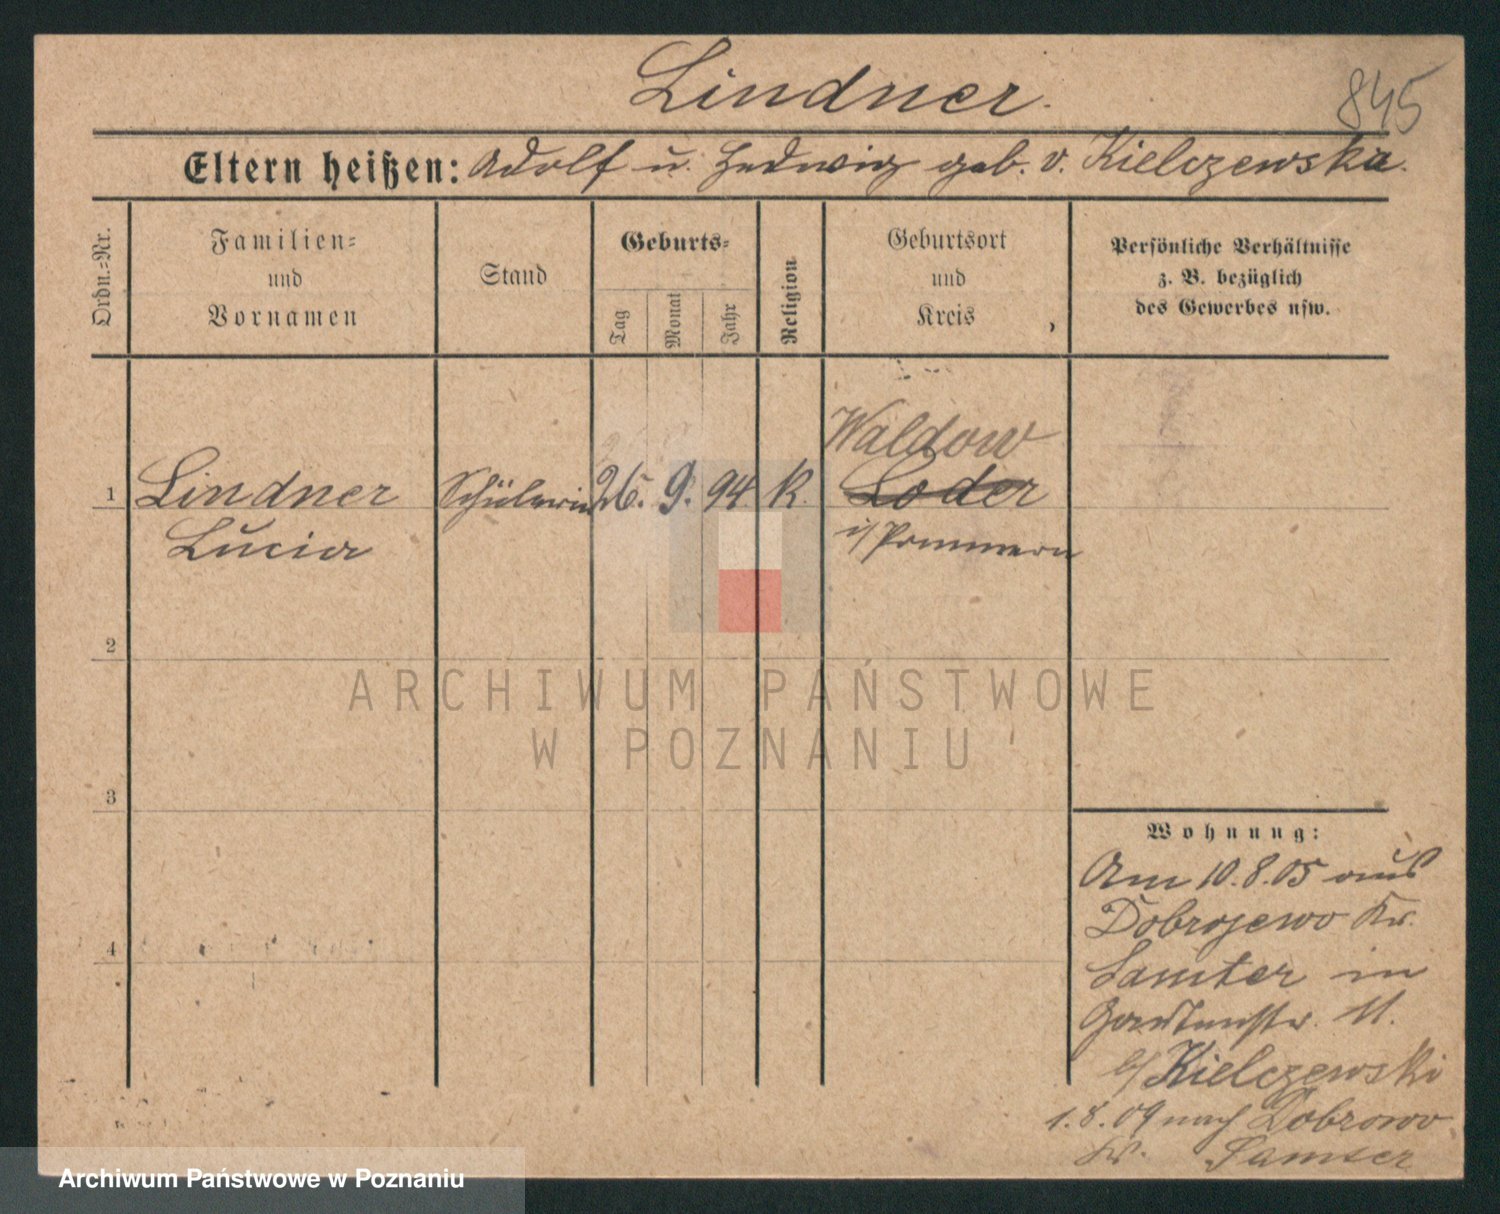 Lindner.
845
Eltern heißen: Adolf u. Hedwig geb. v. Kielczewska.
Ordn.-Nr.
Familien-
und
Vornamen
Stand
Geburts-
Tag
Monat
Jahr
Religion
Geburtsort
und
Kreis
Persönliche Verhältnisse
z. B. bezüglich
des Gewerbes usw.
Waldow
1 Lindner Schülerin 26. 9. 94. K. Loder
Lucia i/Pommern
2
3
4
Wohnung:
Am 10.8.05 aus
Dobrojewo Kr.
Samter in
11.
b/ Kielczewski
1.8.09 nach Dobrowo
Kr. Samter
ARCHIWUM PAŃSTWOWE
W POZNANIU
Archiwum Państwowe w Poznaniu